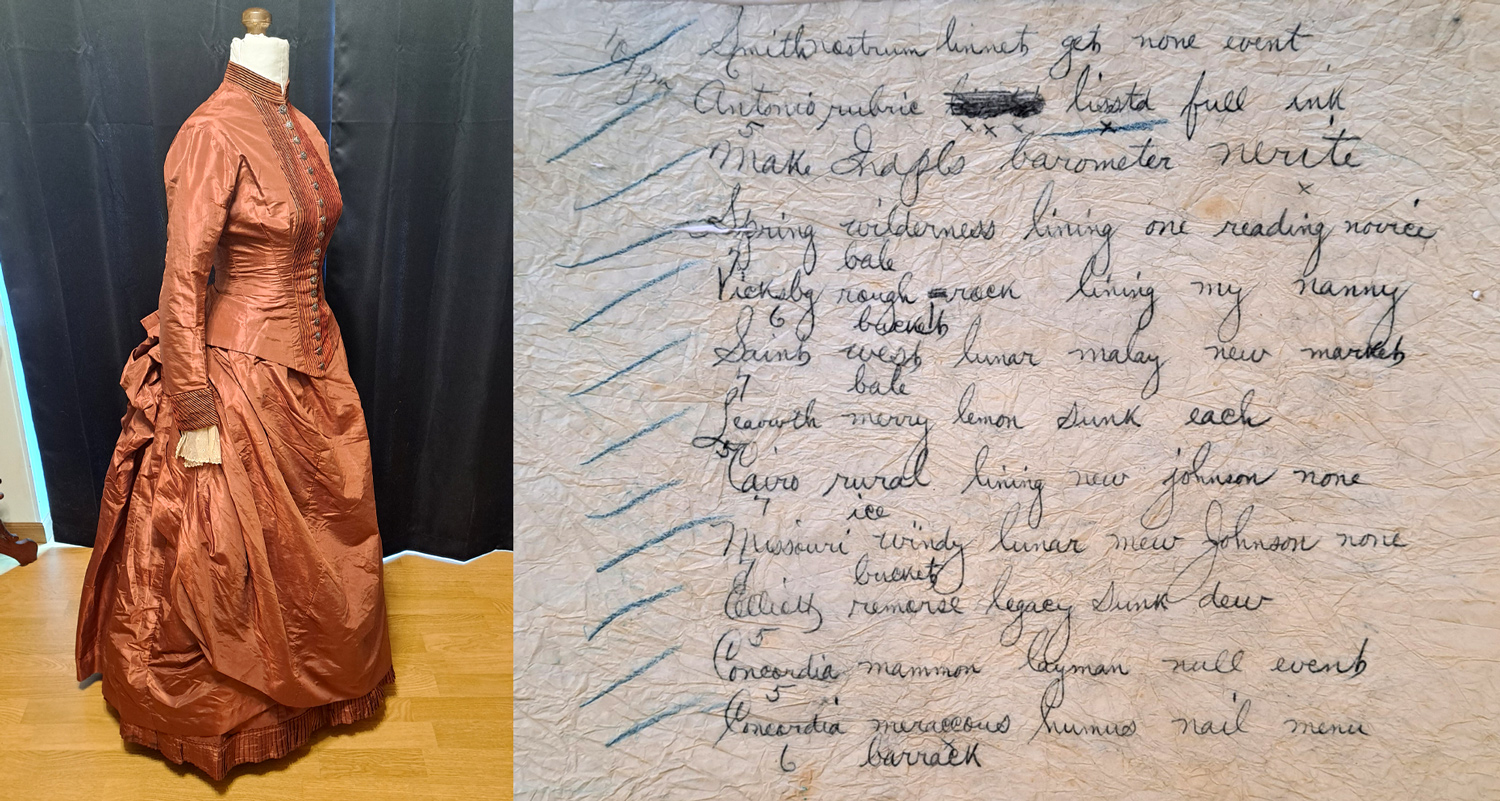 10
pm
Smith nostrum linnet get none event
Antonio rubric lisstd full ink
5
Make Indpls barometer nerite
Spring wilderness lining one reading novice
7 bale
Vicksbg rough rock lining my nanny
6 bucket
Saint west lunar malay new market
7 bale
Leavwth merry lemon sunk each
5
Cairo rural lining new johnson none
7 ice
Missouri windy lunar mew Johnson none
7 bucket
Elliott remorse legacy sunk dew
5
Concordia mammon layman null event
5
Concordia meraccous humus nail menu
6 barrack